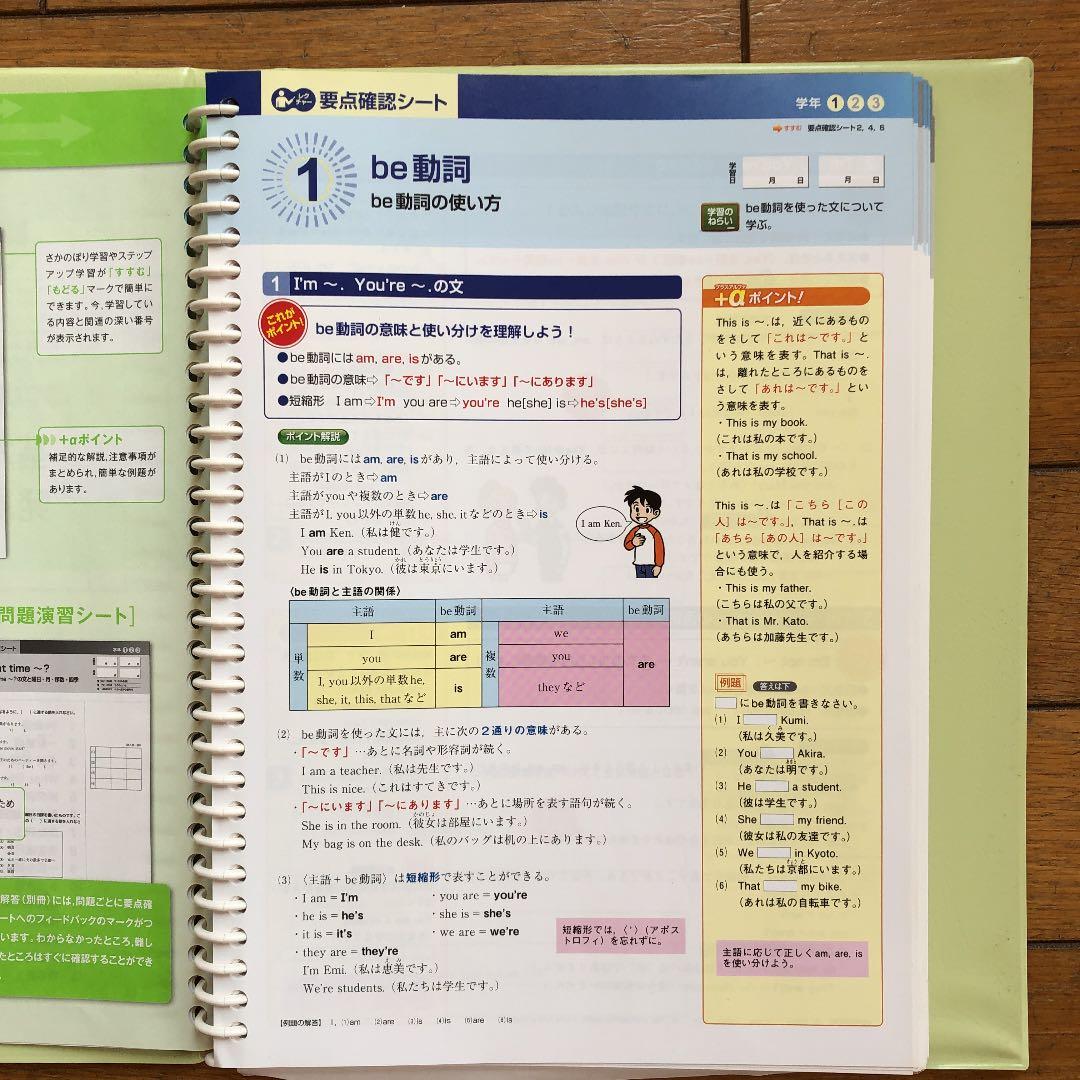 さかのぼり学習やステップ
アップ学習が「すすむ」
「もどる」マークで簡単に
できます。今、学習してい
る内容と関連の深い番号
が表示されます。
+αポイント
補足的な解説、注意事項が
まとめられ、簡単な例題が
あります。
問題演習シート]
at time ～?
解答(別冊)には、問題ごとに要点確
ートへのフィードバックのマークがつ
います。わからなかったところ、難し
たところはすぐに確認することができ
レクチャー 要点確認シート
学年 1 2 3
すすむ 要点確認シート2, 4, 6
1 be動詞
be動詞の使い方
学習日 月 日 月 日
学習のねらい
be動詞を使った文について
学ぶ。
1 I'm ～. You're ～.の文
これがポイント!
be動詞の意味と使い分けを理解しよう!
●be動詞にはam, are, isがある。
●be動詞の意味⇨「～です」「～にいます」「～にあります」
●短縮形 I am⇨I'm you are⇨you're he[she] is⇨he's[she's]
ポイント解説
(1) be動詞にはam, are, isがあり、主語によって使い分ける。
主語がIのとき⇨am
主語がyouや複数のとき⇨are
主語がI, you以外の単数he, she, itなどのとき⇨is
I am Ken.(私は健です。)
You are a student.(あなたは学生です。)
He is in Tokyo.(彼は東京にいます。)
I am Ken.
〈be動詞と主語の関係〉
主語 be動詞 主語 be動詞
単数 I am 複数 we are
you are you
I, you以外の単数he, she, it, this, thatなど is theyなど
(2) be動詞を使った文には、主に次の2通りの意味がある。
・「～です」…あとに名詞や形容詞が続く。
I am a teacher.(私は先生です。)
This is nice.(これはすてきです。)
・「～にいます」「～にあります」…あとに場所を表す語句が続く。
She is in the room.(彼女は部屋にいます。)
My bag is on the desk.(私のバッグは机の上にあります。)
(3) 〈主語+be動詞〉は短縮形で表すことができる。
・I am = I'm ・you are = you're
・he is = he's ・she is = she's
・it is = it's ・we are = we're
・they are = they're
I'm Emi.(私は恵美です。)
We're students.(私たちは学生です。)
短縮形では、〈'〉(アポス
トロフィ)を忘れずに。
【例題の解答】 1. (1)am (2)are (3)is (4)is (5)are (6)is
プラスアルファ
+αポイント!
This is ～.は、近くにあるもの
をさして「これは～です。」と
いう意味を表す。That is ～.
は、離れたところにあるものを
さして「あれは～です。」とい
う意味を表す。
・This is my book.
(これは私の本です。)
・That is my school.
(あれは私の学校です。)
This is ～.は「こちら[この
人]は～です。」、That is ～.は
「あちら[あの人]は～です。」
という意味で、人を紹介する場
合にも使う。
・This is my father.
(こちらは私の父です。)
・That is Mr. Kato.
(あちらは加藤先生です。)
例題 答えは下
にbe動詞を書きなさい。
(1) I Kumi.
(私は久美です。)
(2) You Akira.
(あなたは明です。)
(3) He a student.
(彼は学生です。)
(4) She my friend.
(彼女は私の友達です。)
(5) We in Kyoto.
(私たちは京都にいます。)
(6) That my bike.
(あれは私の自転車です。)
主語に応じて正しくam, are, is
を使い分けよう。